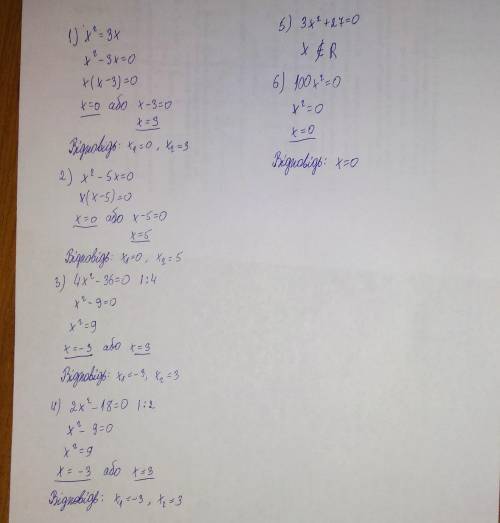 1) x² = 3x
x² - 3x = 0
x(x - 3) = 0
x = 0 або x - 3 = 0
x = 3
Відповідь: x₁ = 0, x₂ = 3
2) x² - 5x = 0
x(x - 5) = 0
x = 0 або x - 5 = 0
x = 5
Відповідь: x₁ = 0, x₂ = 5
3) 4x² - 36 = 0 |:4
x² - 9 = 0
x² = 9
x = -3 або x = 3
Відповідь: x₁ = -3, x₂ = 3
4) 2x² - 18 = 0 |:2
x² - 9 = 0
x² = 9
x = -3 або x = 3
Відповідь: x₁ = -3, x₂ = 3
5) 3x² + 27 = 0
x ∉ R
6) 100x² = 0
x² = 0
x = 0
Відповідь: x = 0